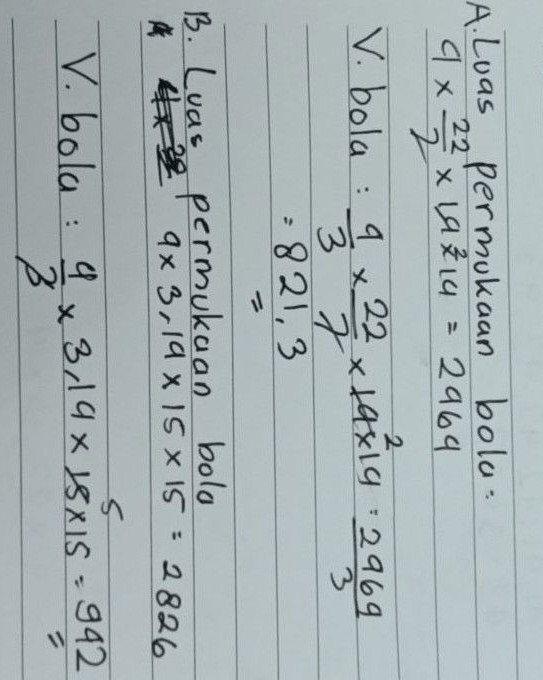 A. Luas permukaan bola:
4 x 22/7 x 14 2 x 14 = 2464
V. bola : 4/3 x 22/7 x 14 x 14 2 = 2464/3
= 821,3
B. Luas permukaan bola
4 x 3,14 x 15 x 15 = 2826
V. bola : 4/3 x 3,14 x 15 5 x 15 = 942